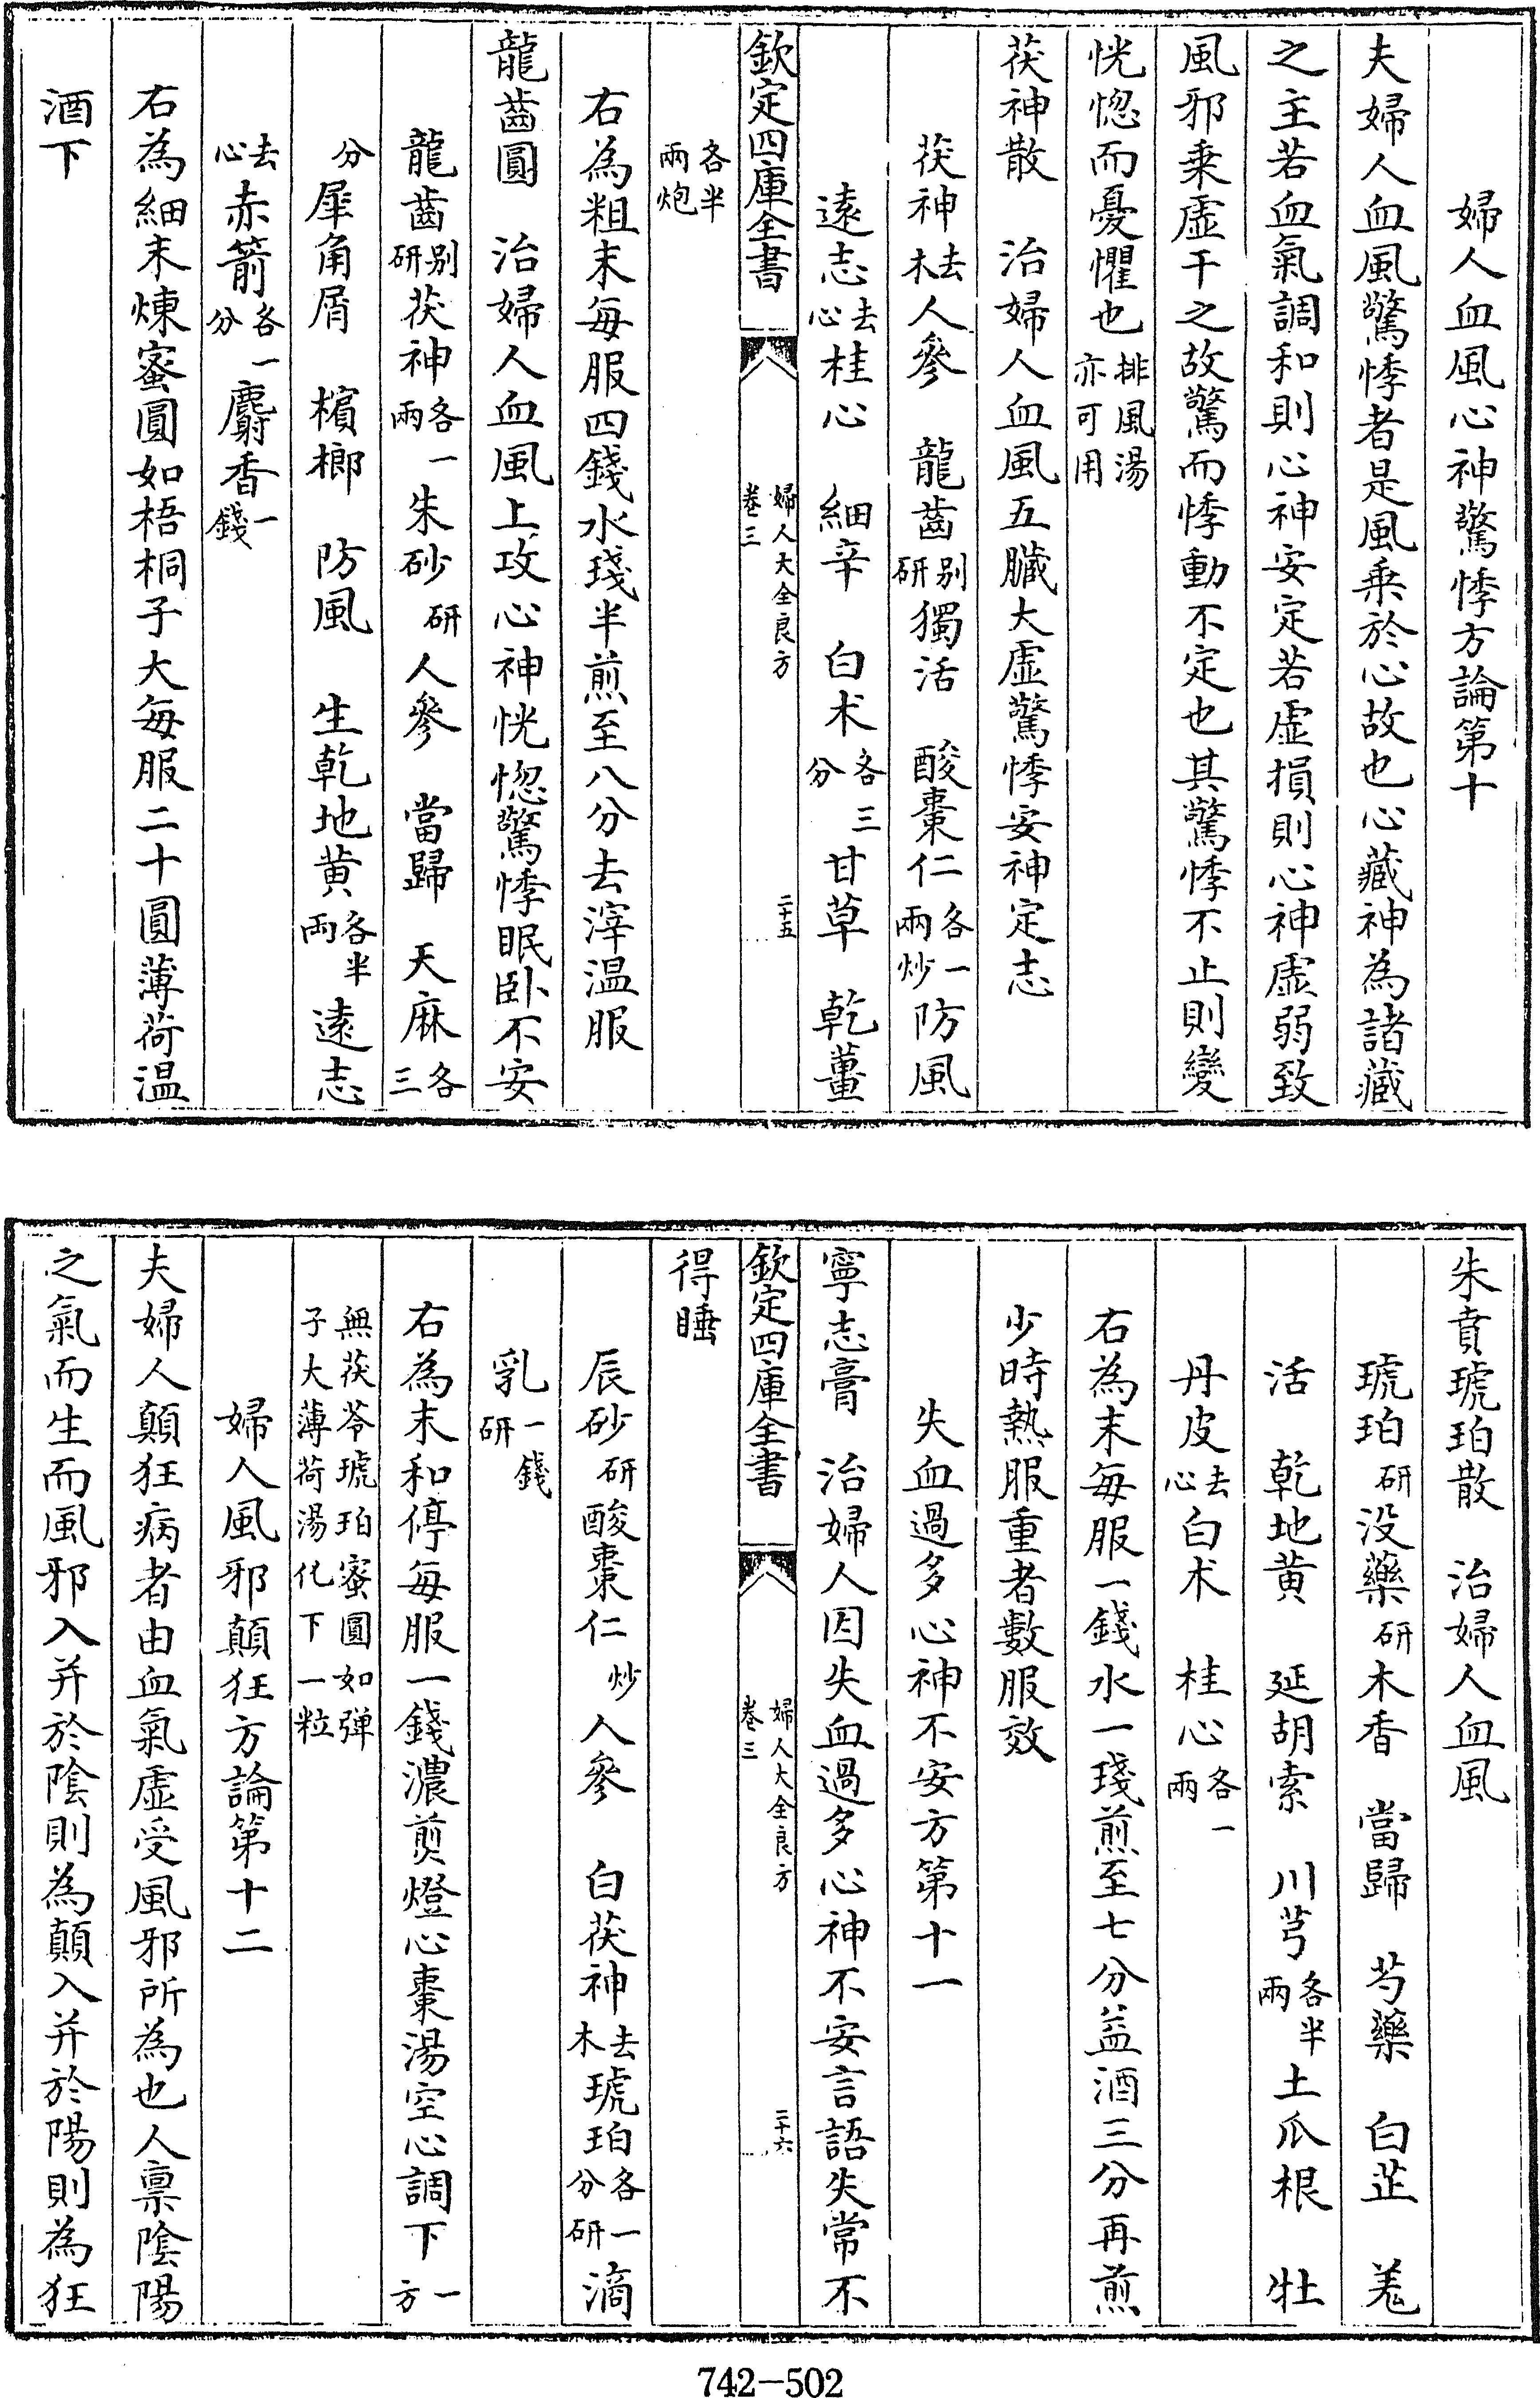 婦人血風心神驚悸方論第十
夫婦人血風驚悸者是風乗於心故也心藏神為諸藏
之主若血氣調和則心神安定若虛損則心神虛弱致
風邪乗虛干之故驚而悸動不定也其驚悸不止則變
恍惚而憂懼也排風湯亦可用
茯神散　治婦人血風五臟大虛驚悸安神定志
茯神去木人參　龍齒别研獨活　酸棗仁各一兩炒防風
遠志去心桂心　細辛　白术各三分　甘草　乾薑
欽定四庫全書　婦人大全良方卷三　二十五
各半兩炮
右為粗末每服四錢水琖半煎至八分去滓温服
龍齒圓　治婦人血風上攻心神恍惚驚悸眠卧不安
龍齒别研茯神各一兩朱砂研人參　當歸　天麻各三
分犀角屑　檳榔　防風　生乾地黄各半兩遠志
去心赤箭各一分麝香一錢
右為細末煉蜜圓如梧桐子大每服二十圓薄荷温
酒下
朱賁琥珀散　治婦人血風
琥珀研没藥研木香　當歸　芍藥　白芷　羗
活　乾地黄　延胡索　川芎各半兩土瓜根　牡
丹皮去心白术　桂心各一兩
右為末每服一錢水一琖煎至七分益酒三分再煎
少時熱服重者數服效
失血過多心神不安方第十一
寧志膏　治婦人因失血過多心神不安言語失常不
欽定四庫全書　婦人大全良方卷三　二十六
得睡
辰砂研酸棗仁炒人參　白茯神去木琥珀各一分研滴
乳一錢研
右為末和停每服一錢濃煎燈心棗湯空心調下一方
無茯苓琥珀蜜圓如弹子大薄荷湯化下一粒
婦人風邪顛狂方論第十二
夫婦人顛狂病者由血氣虛受風邪所為也人禀陰陽
之氣而生而風邪入并於陰則為顛入并於陽則為狂
742-502